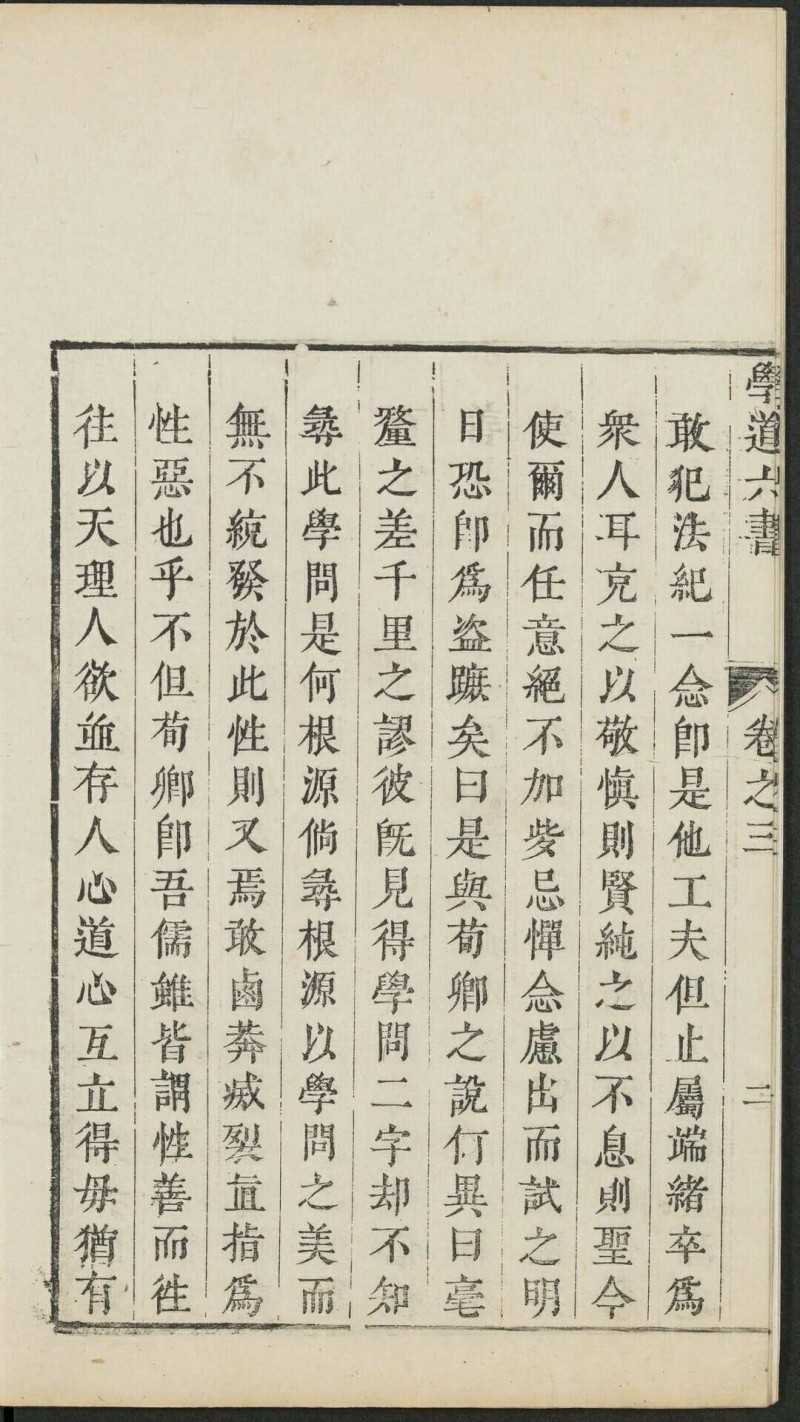 學道六書 卷之三 二
敢犯法紀一念卽是他工夫但止屬端緖卒爲
衆人耳克之以敬愼則賢純之以不息則聖今
使爾而任意絕不加些忌憚念慮出而試之明
日恐卽爲盗蹠矣曰是與荀卿之說何異曰毫
釐之差千里之謬彼旣見得學問二字却不知
尋此學問是何根源倘尋根源以學問之美而
無不統發於此性則又焉敢鹵莽滅裂直指爲
性惡也乎不但荀卿卽吾儒雖皆謂性善而徃
往以天理人欲並存人心道心互立得毋猶有